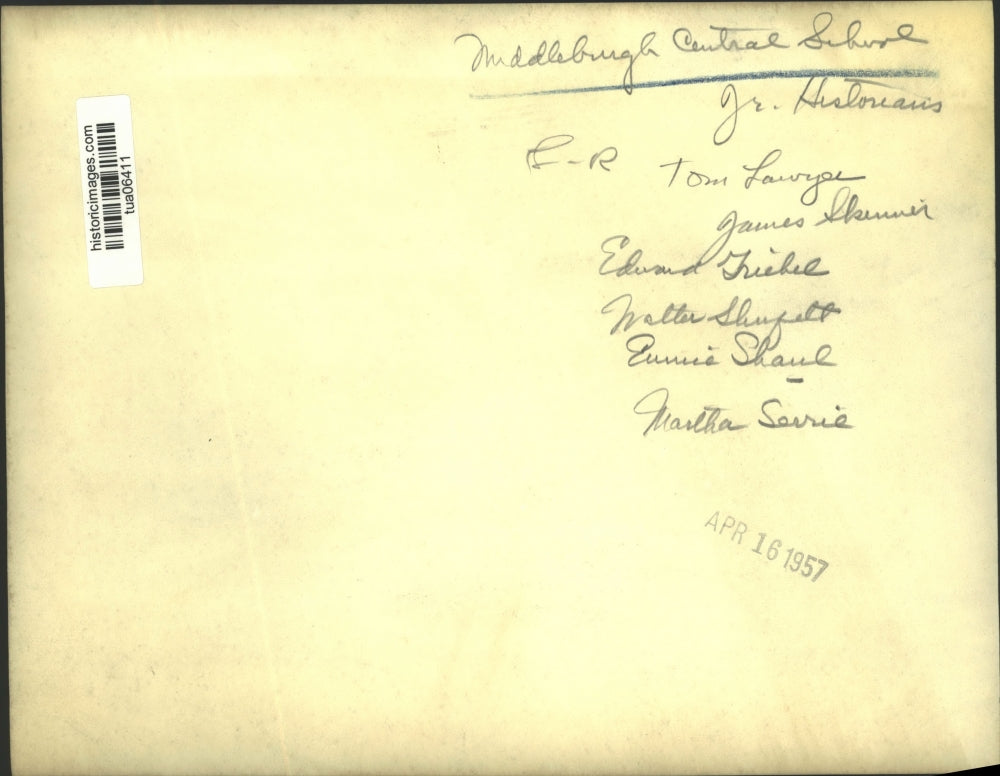 Middleburgh Central School
Jr. Historians
L-R Tom Lawyer
James Skinner
Edward Friebel
Walter Shupelt
Eunice Shaul
Martha Serrie
APR 16 1957
historicimages.com
tua06411